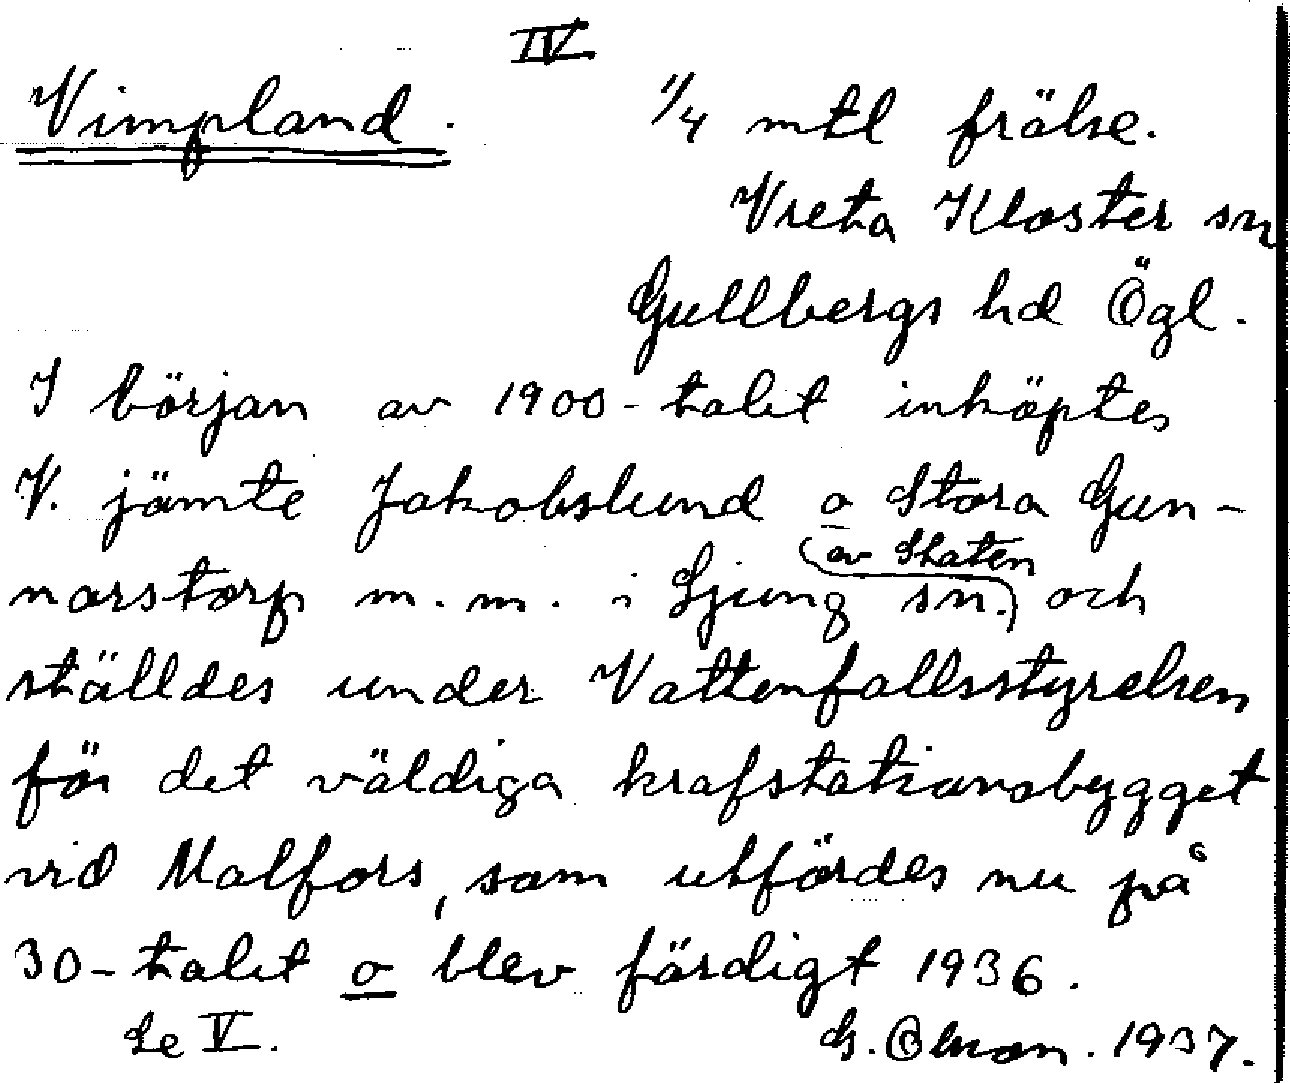 IV
Vimpland. 1/4 mtl frälse.
Vreta Kloster sn
Gullbergs hd Ögl.
I början av 1900-talet inköptes
V. jämte Jakobslund o Stora Gun-
(av Staten
narstorp m.m. i Ljung sn.) och
ställdes under Vattenfallsstyrelsen
för det väldiga krafstationsbygget
vid Malfors, som utfördes nu på
30-talet o blev färdigt 1936.
Se V. G. Ohson. 1937.